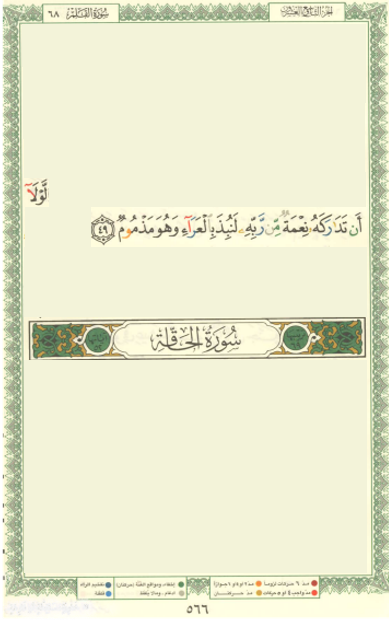 الجزء التاسع والعشرون
سُورَةُ القَلَمِ ٦٨
لَّوْلَآ
أَن تَدَٰرَكَهُۥ نِعْمَةٌ مِّن رَّبِّهِۦ لَنُبِذَ بِٱلْعَرَآءِ وَهُوَ مَذْمُومٌ ٤٩
سُورَةُ الحَاقَّةِ
مدّ ٦ حركات لزوماً مدّ ٢ أو ٤ أو ٦ جوازاً
مدّ واجب ٤ أو ٥ حركات مدّ حركتان
إخفاء، ومواقع الغُنَّة (حركتان) تفخيم الراء
ادغام، وما لا يُلفظ قلقلة
٥٦٦